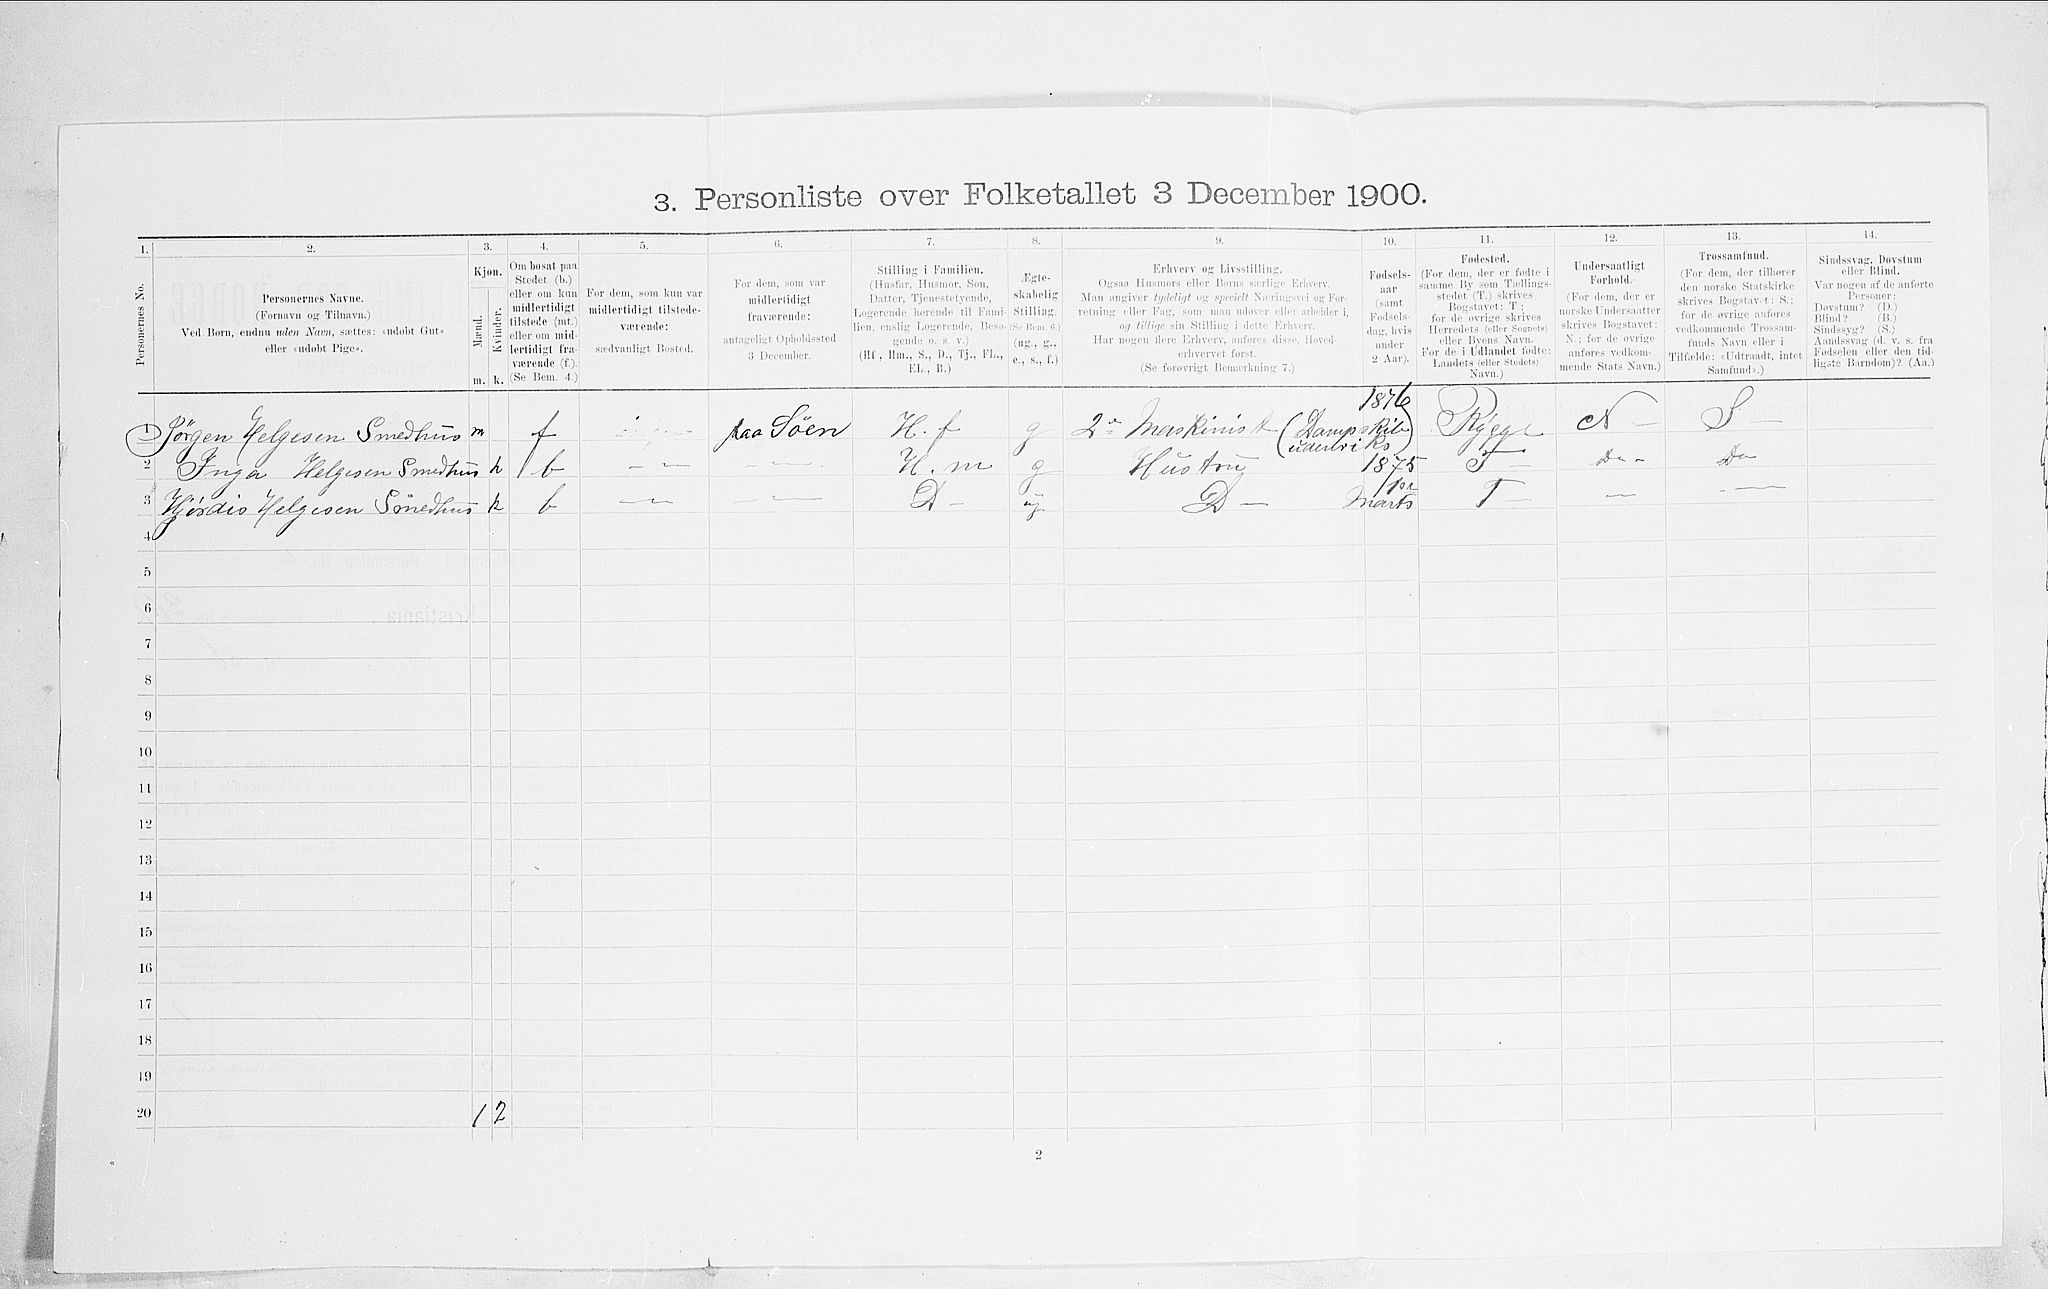 3. Personliste over Folketallet 3 December 1900.
1. 2. 3. 4. 5. 6. 7. 8. 9. 10. 11. 12. 13. 14.
Personernes No.
Personernes Navne.
(Fornavn og Tilnavn.)
Ved Børn, endnu uden Navn, sættes: «udøbt Gut»
eller «udøbt Pige».
Kjøn.
Mænd.
Kvinder.
m. k.
Om bosat paa
Stedet (b.)
eller om kun
midlertidigt
tilstede (mt.)
eller om mid-
lertidigt fra-
værende (f.).
(Se Bem. 4.)
For dem, som kun var
midlertidigt tilstede-
værende:
sædvanligt Bosted.
For dem, som var
midlertidigt
fraværende:
antageligt Opholdssted
3 December.
Stilling i Familien.
(Husfar, Husmor, Søn,
Datter, Tjenestetyende,
Logerende hørende til Fami-
lien, enslig Logerende, Besø-
gende o. s. v.)
(Hf., Hm., S., D., Tj., FL.,
EL., B.)
Ægte-
skabelig
Stilling.
(Se Bem. 6.)
(ug., g.,
e., s., f.)
Erhverv og Livsstilling.
Ogsaa Husmors eller Børns særlige Erhverv.
Man angiver tydeligt og specielt Næringsvei og For-
retning eller Fag, som man udøver eller arbeider i,
og tillige sin Stilling i dette Erhverv.
Har nogen flere Erhverv, anføres disse, Hoved-
erhvervet først.
(Se forøvrigt Bemærkning 7.)
Fødsels-
aar
(samt
Fødsels-
dag, hvis
under
2 Aar).
Fødested.
(For dem, der er fødte i
samme By som Tællings-
stedet (T.) skrives
Bogstavet: T;
for de øvrige skrives
Herredets (eller Sognets)
eller Byens Navn.
For de i Udlandet fødte:
Landets (eller Stedets)
Navn.)
Undersaatligt
Forhold.
(For dem, der er
norske Undersaatter
skrives Bogstavet:
N.; for de øvrige
anføres vedkom-
mende Stats Navn.)
Trossamfund.
(For dem, der tilhører
den norske Statskirke
skrives Bogstavet: S.;
for de øvrige anføres
vedkommende Trossam-
funds Navn eller i
Tilfælde: «Udtraadt, intet
Samfund».)
Sindssvag, Døvstum
eller Blind.
Var nogen af de anførte
Personer:
Døvstum? (D.)
Blind? (B.)
Sindssyg? (S.)
Aandssvag (d. v. s. fra
Fødselen eller den tid-
ligste Barndom)? (Aa.)
1 Jørgen Helgesen Smedhus m f paa Söen H. f g 2n Maskinist (Dampskib udenriks) 1876 Rygge N S
2 Inga Helgesen Smedhus k b H. m g Hustru 1875 T Do Do
3 Hjørdis Helgesen Smedhus k b D ug D Marts T
4
5
6
7
8
9
10
11
12
13
14
15
16
17
18
19
20 1 2
2